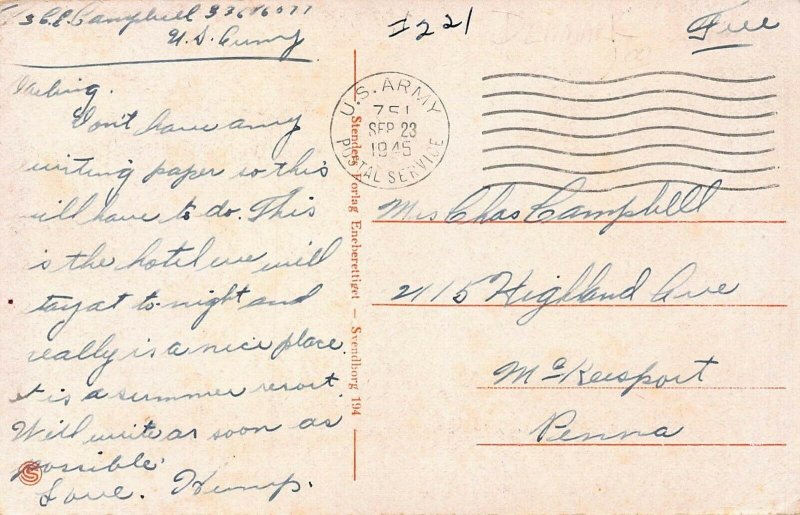 C. Campbell 33676077
U.S. Army
I221
Denmark
Free
U.S. ARMY
751
SEP 23
1945
POSTAL SERVICE
Darling.
Don't have any
writing paper so this
will have to do. This
is the hotel we will
stay at to-night and
really is a nice place.
It is a summer resort.
Will write as soon as
possible.
Love. Hump.
Stenders Forlag Eneberettiget - Svendborg 194
S
Mrs Chas Campbell
2115 Highland Ave
McKeesport
Penna